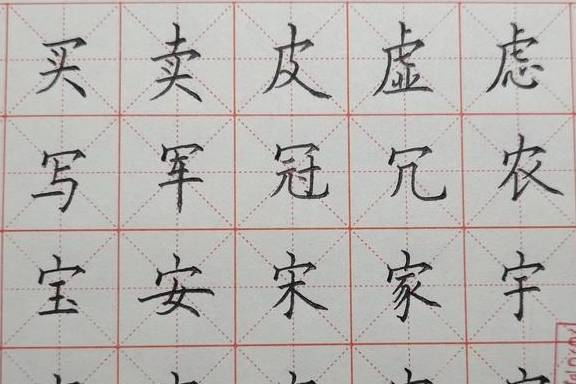 买卖皮虚虑
写军冠冗农
宝安宋家宇